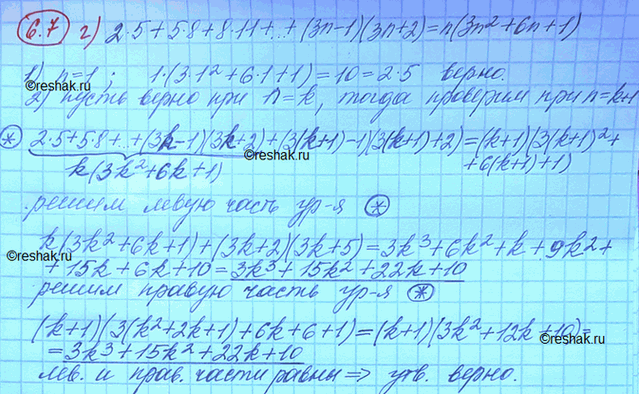 6.7 г) 2·5+5·8+8·11+...+(3n-1)(3n+2)=n(3n²+6n+1)
1) n=1; 1·(3·1²+6·1+1)=10=2·5 верно.
2) пусть верно при n=k, тогда проверим при n=k+1
* 2·5+5·8+...+(3k-1)(3k+2)+(3(k+1)-1)(3(k+1)+2)=(k+1)(3(k+1)²+
k(3k²+6k+1) +6(k+1)+1)
reshak.ru
решим левую часть ур-я *
reshak.ru
k(3k²+6k+1)+(3k+2)(3k+5)=3k³+6k²+k+9k²+
reshak.ru
+15k+6k+10=3k³+15k²+22k+10
решим правую часть ур-я *
(k+1)(3(k²+2k+1)+6k+6+1)=(k+1)(3k²+12k+10)=
reshak.ru
=3k³+15k²+22k+10
лев. и прав. части равны => утв. верно.